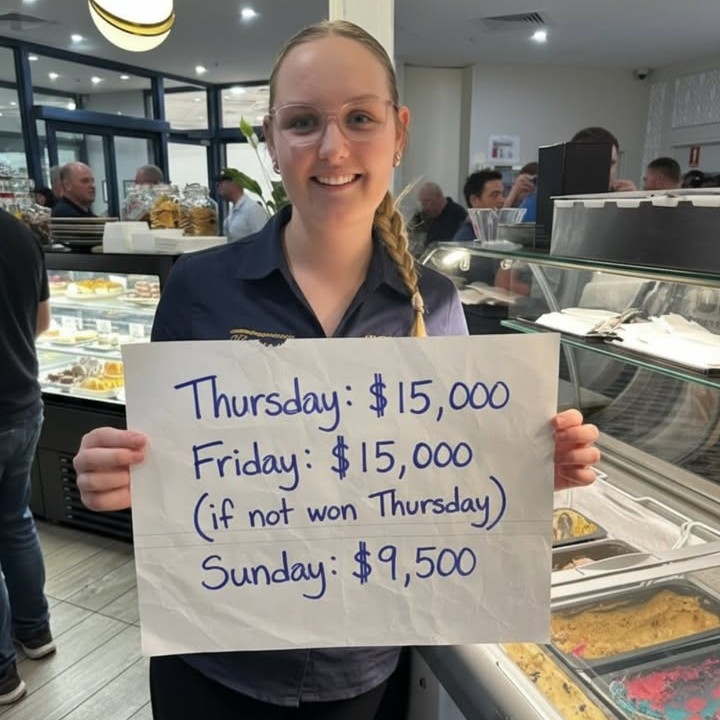 Thursday: $15,000
Friday: $15,000
(if not won Thursday)
Sunday: $9,500